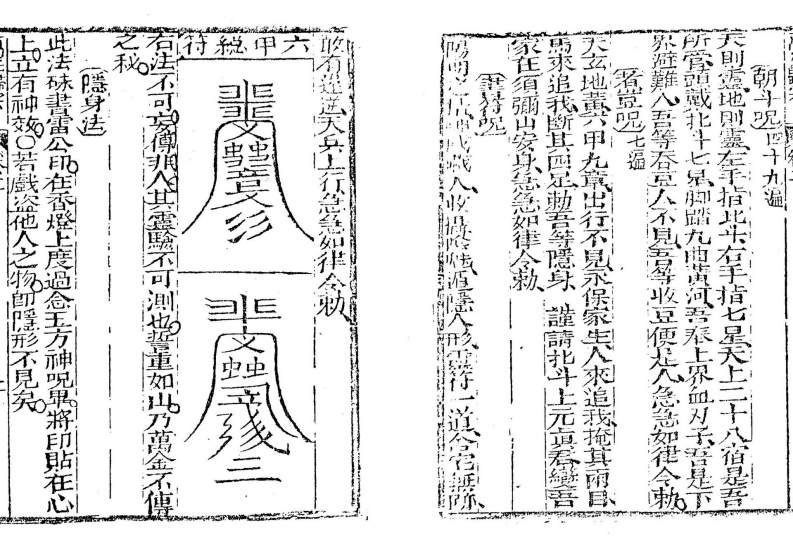 朝斗呪四十九遍
天則靈地則靈左手指北斗右手指七星天上二十八宿是吾
所管頭戴北斗七星脚踏九曲黃河吾奉上界血刃子吾是下
界避難人吾等吞豆人不見吾等收豆便是人急急如律令勅
着豈呪七遍
天玄地黃六甲九章出行不見永保家生人來追我掩其兩目
馬來追我斷其四足勅吾等隱身 謹請北斗上元眞君變吾
家在須彌山安身急急如律令勅
書符呪
陽明之 人收 遁隱人形靈符一道令它無跡
敢有違逆天兵上行急急如律令勅
六甲總符
右法不可妄傳非人其靈驗不可測也誓重如山乃萬金不傳
之秘
隱身法
此法硃書雷公印在香燈上度過念五方神呪畢將印貼在心
上立有神效〇若戲盗他人之物卽隱形不見矣